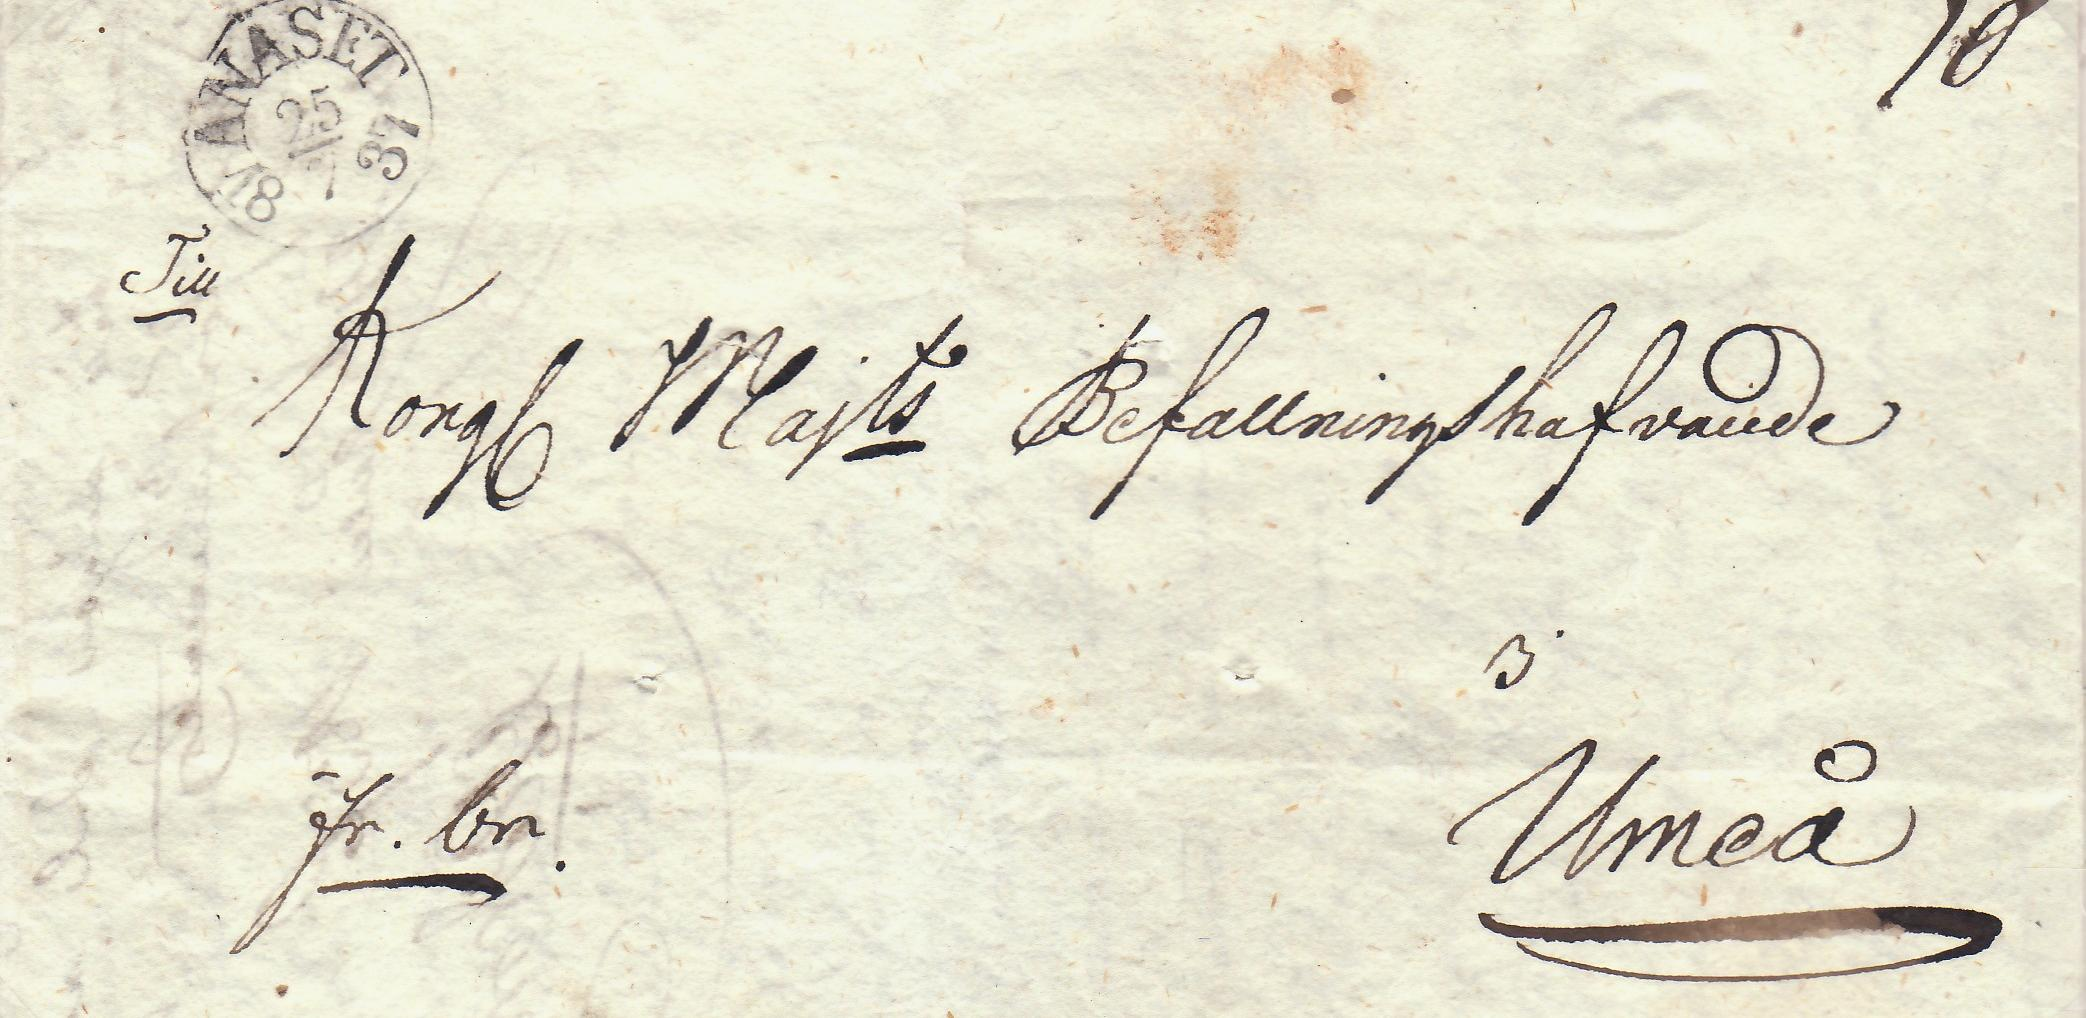 ANÄSET
25/7
18 37
Till
Kongl Majts Befallningshafvande
i
Umeå
fr. br.